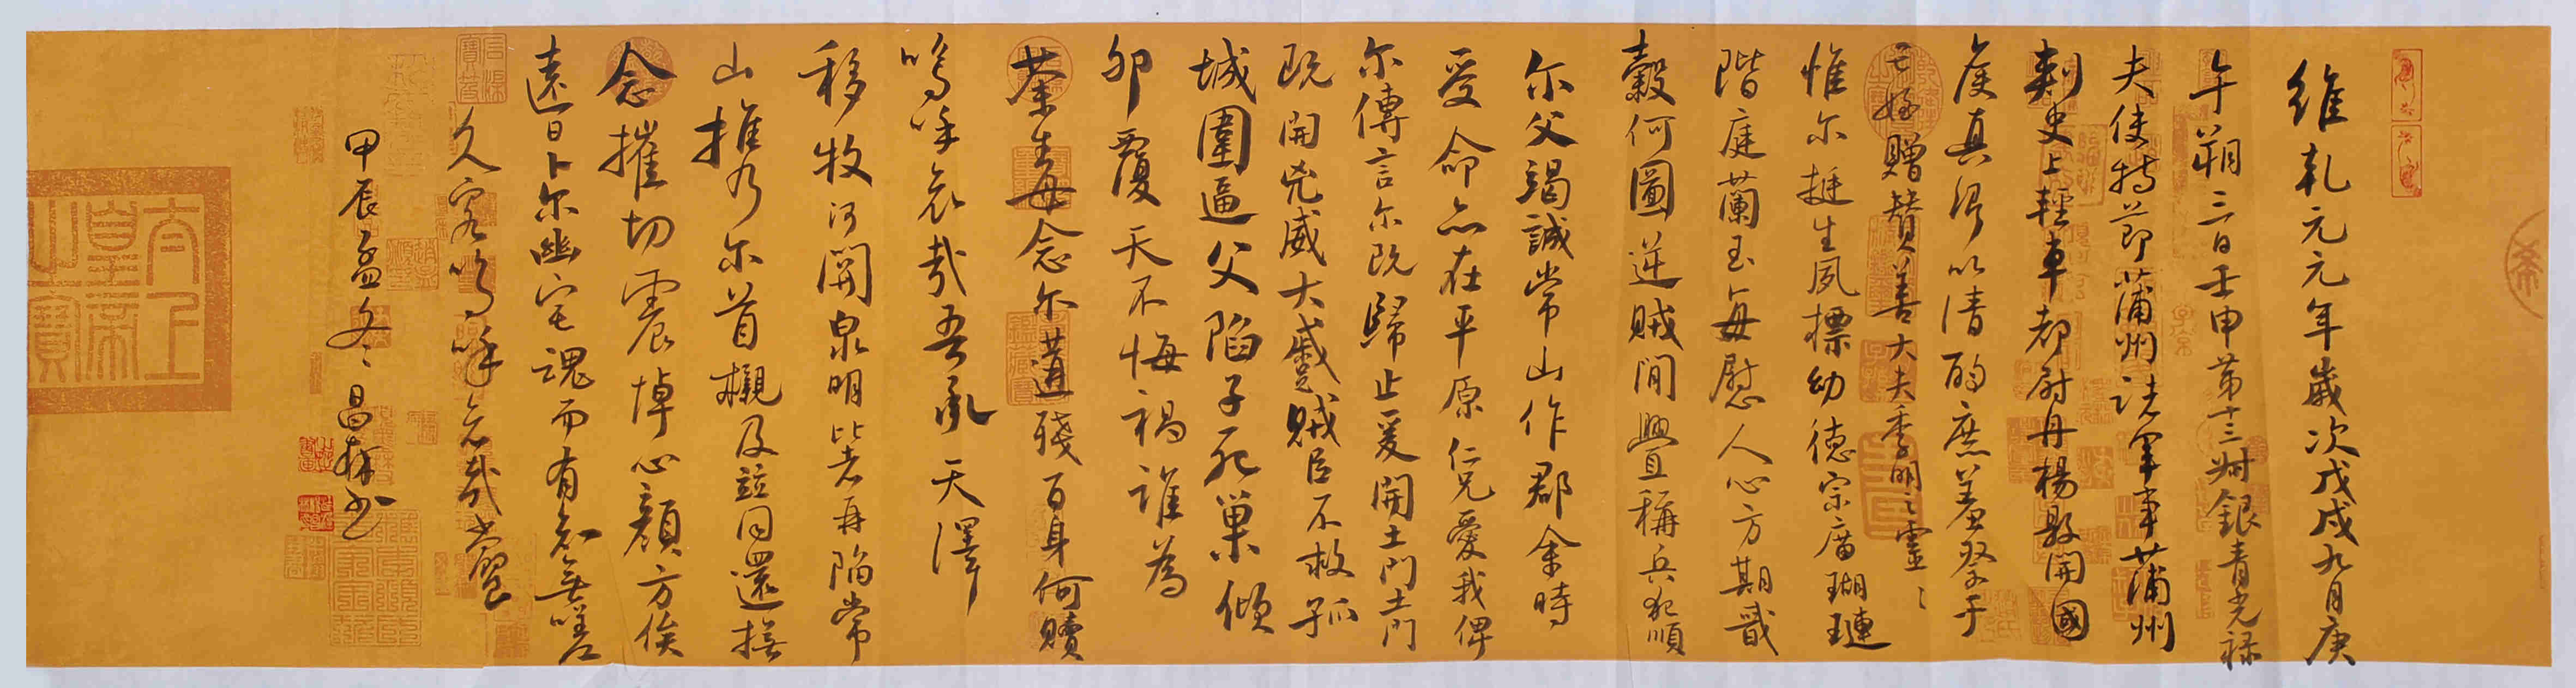 維乾元元年歲次戊戌九月庚
午朔三日壬申第十三叔銀青光祿
夫使持節蒲州諸軍事蒲州
刺史上輕車都尉丹楊縣開國
侯真卿以清酌庶羞祭于
亡姪贈贊善大夫季明之靈
惟尔挺生夙標幼德宗廟瑚璉
階庭蘭玉每慰人心方期戩
穀何圖逆賊閒釁稱兵犯順
尔父竭誠常山作郡余時
受命亦在平原仁兄愛我俾
尔傳言尔既歸止爰開土門土門
既開兇威大蹙賊臣不救孤
城圍逼父陷子死巢傾
卵覆天不悔禍誰為
荼毒念尔遘殘百身何贖
嗚呼哀哉吾承天澤
移牧河關泉明比者再陷常
山攜乃尔首櫬及茲同還撫
念摧切震悼心顏方俟
遠日卜尔幽宅魂而有知無嗟
久客嗚呼哀哉尚饗
甲辰孟冬 昌
太上皇帝之寶